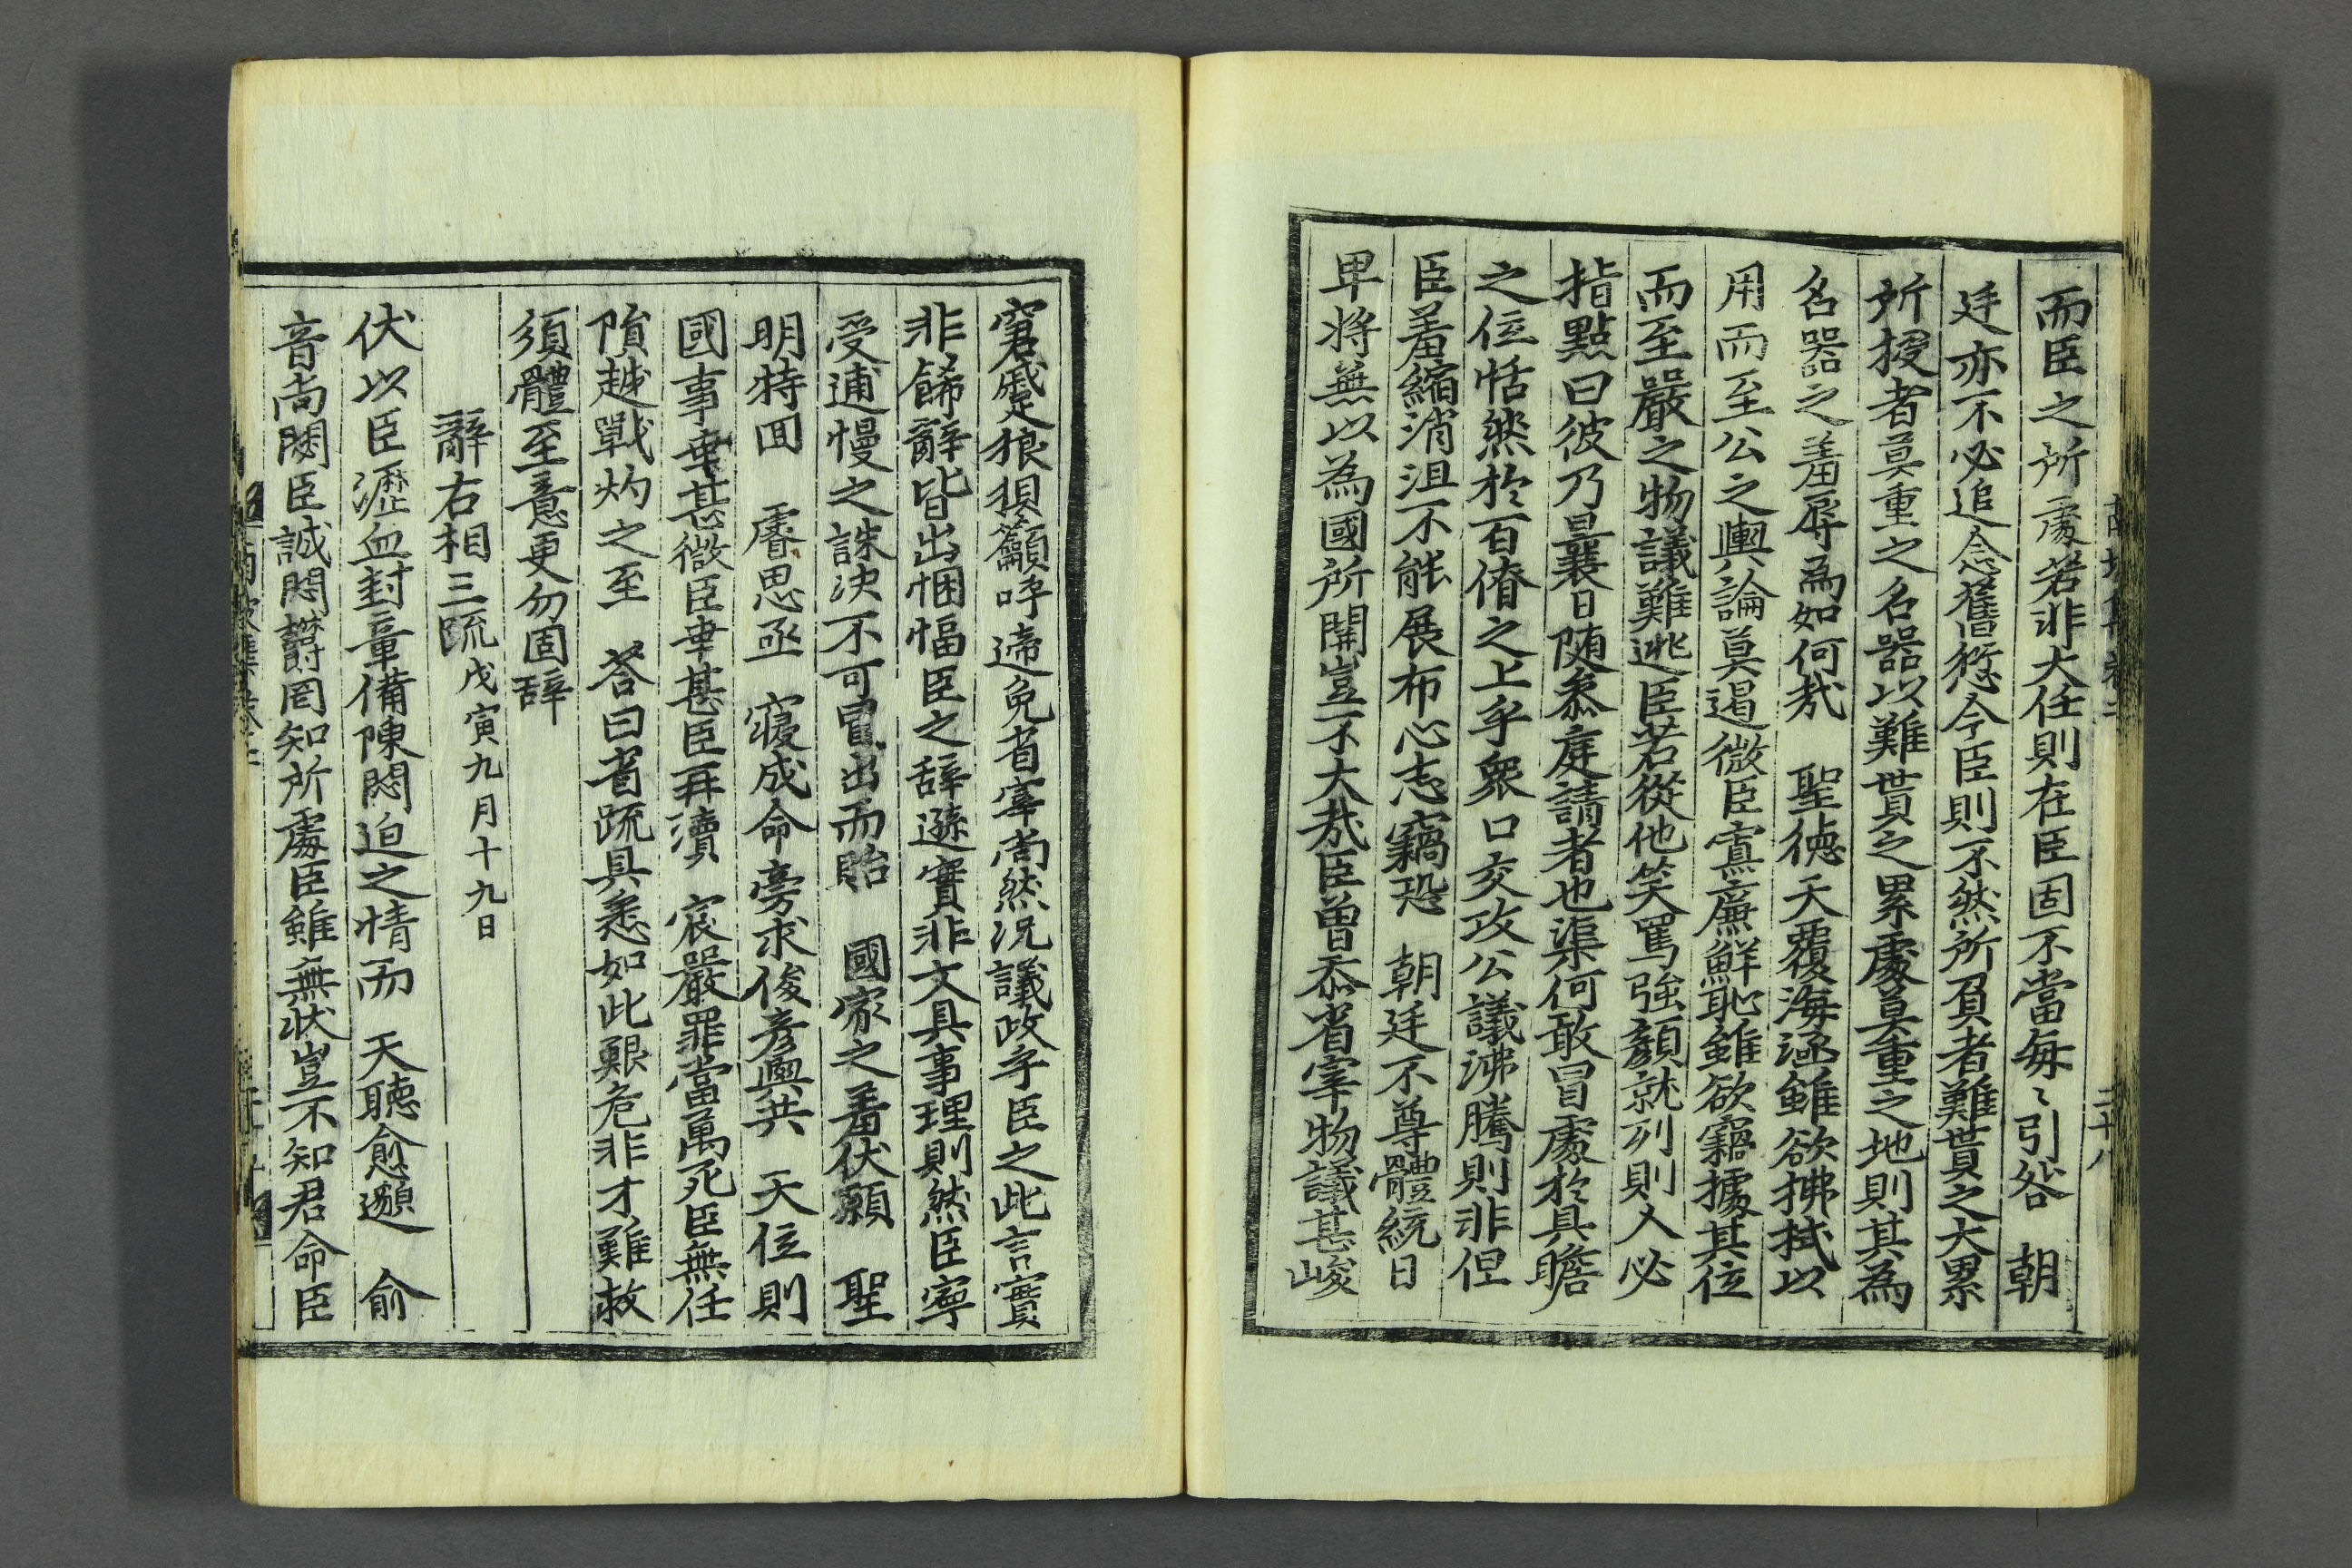 而臣之所處若非大任則在臣固不當每〻引咎 朝
廷亦不必追念舊愆今臣則不然所負者難貰之大累
所授者莫重之名器以難貰之累處莫重之地則其為
名器之羞辱為如何哉 聖德天覆海涵雖欲拂拭以
用而至公之輿論莫遏微臣寡廉鮮恥雖欲竊據其位
而至嚴之物議難逃臣若從他笑罵強顏就列則人必
指點曰彼乃曩日随叅庭請者也渠何敢冒處於具瞻
之位恬然於百僚之上乎衆口交攻公議沸騰則非但
臣羞縮消沮不能展布心志竊恐 朝廷不尊體統日
卑將無以為國所關豈不大哉臣曾忝省宰物議甚峻
窘蹙狼狽籲呼遆免省宰尚然況議政乎臣之此言實
非餙辭皆出悃愊臣之辞遜實非文具事理則然臣寧
受逋慢之誅決不可冒出而貽 國家之羞伏願 聖
明特囬 睿思亟 寢成命旁求俊彥與共 天位則
國事幸甚微臣幸甚臣再瀆 宸嚴罪當萬死臣無任
隕越戰灼之至 荅曰省疏具悉如此艱危非才難救
須體至意更勿固辞
辭右相三疏戊寅九月十九日
伏以臣瀝血封章備陳悶迫之情而 天聽愈邈 俞
音尚閟臣誠悶欝罔知所處臣雖無状豈不知君命臣